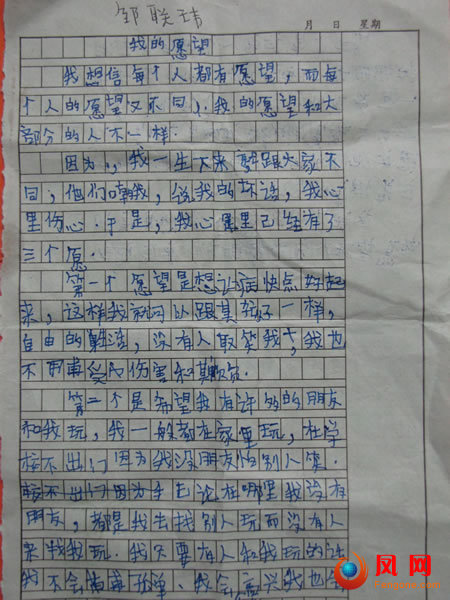 邹联玮
月 日 星期
我的愿望
我想信每个人都有愿望，而每
个人的愿望又不同，我的愿望和大
部分的人不一样.
因为，我一生下来就跟大家不
同，他们嘲我，说我的坏话，我心
里伤心.于是，我心里里已经有了
三个愿.
第一个愿望是想让病快点好起
来，这样我就可以跟其好一样，
自由的生活，没有人取笑我，我也
不用再受伤害和欺负.
第二个是希望我有许多的朋友
和我玩，我一般都在家里玩，在学
校不出门因为我没朋友怕别人笑.
校不出门因为 论在哪里我没有
朋友，都是我去找别人玩而没有人
来找我玩.我只要有人和我玩的话
我不会 孤单、我会高兴我也
凤网